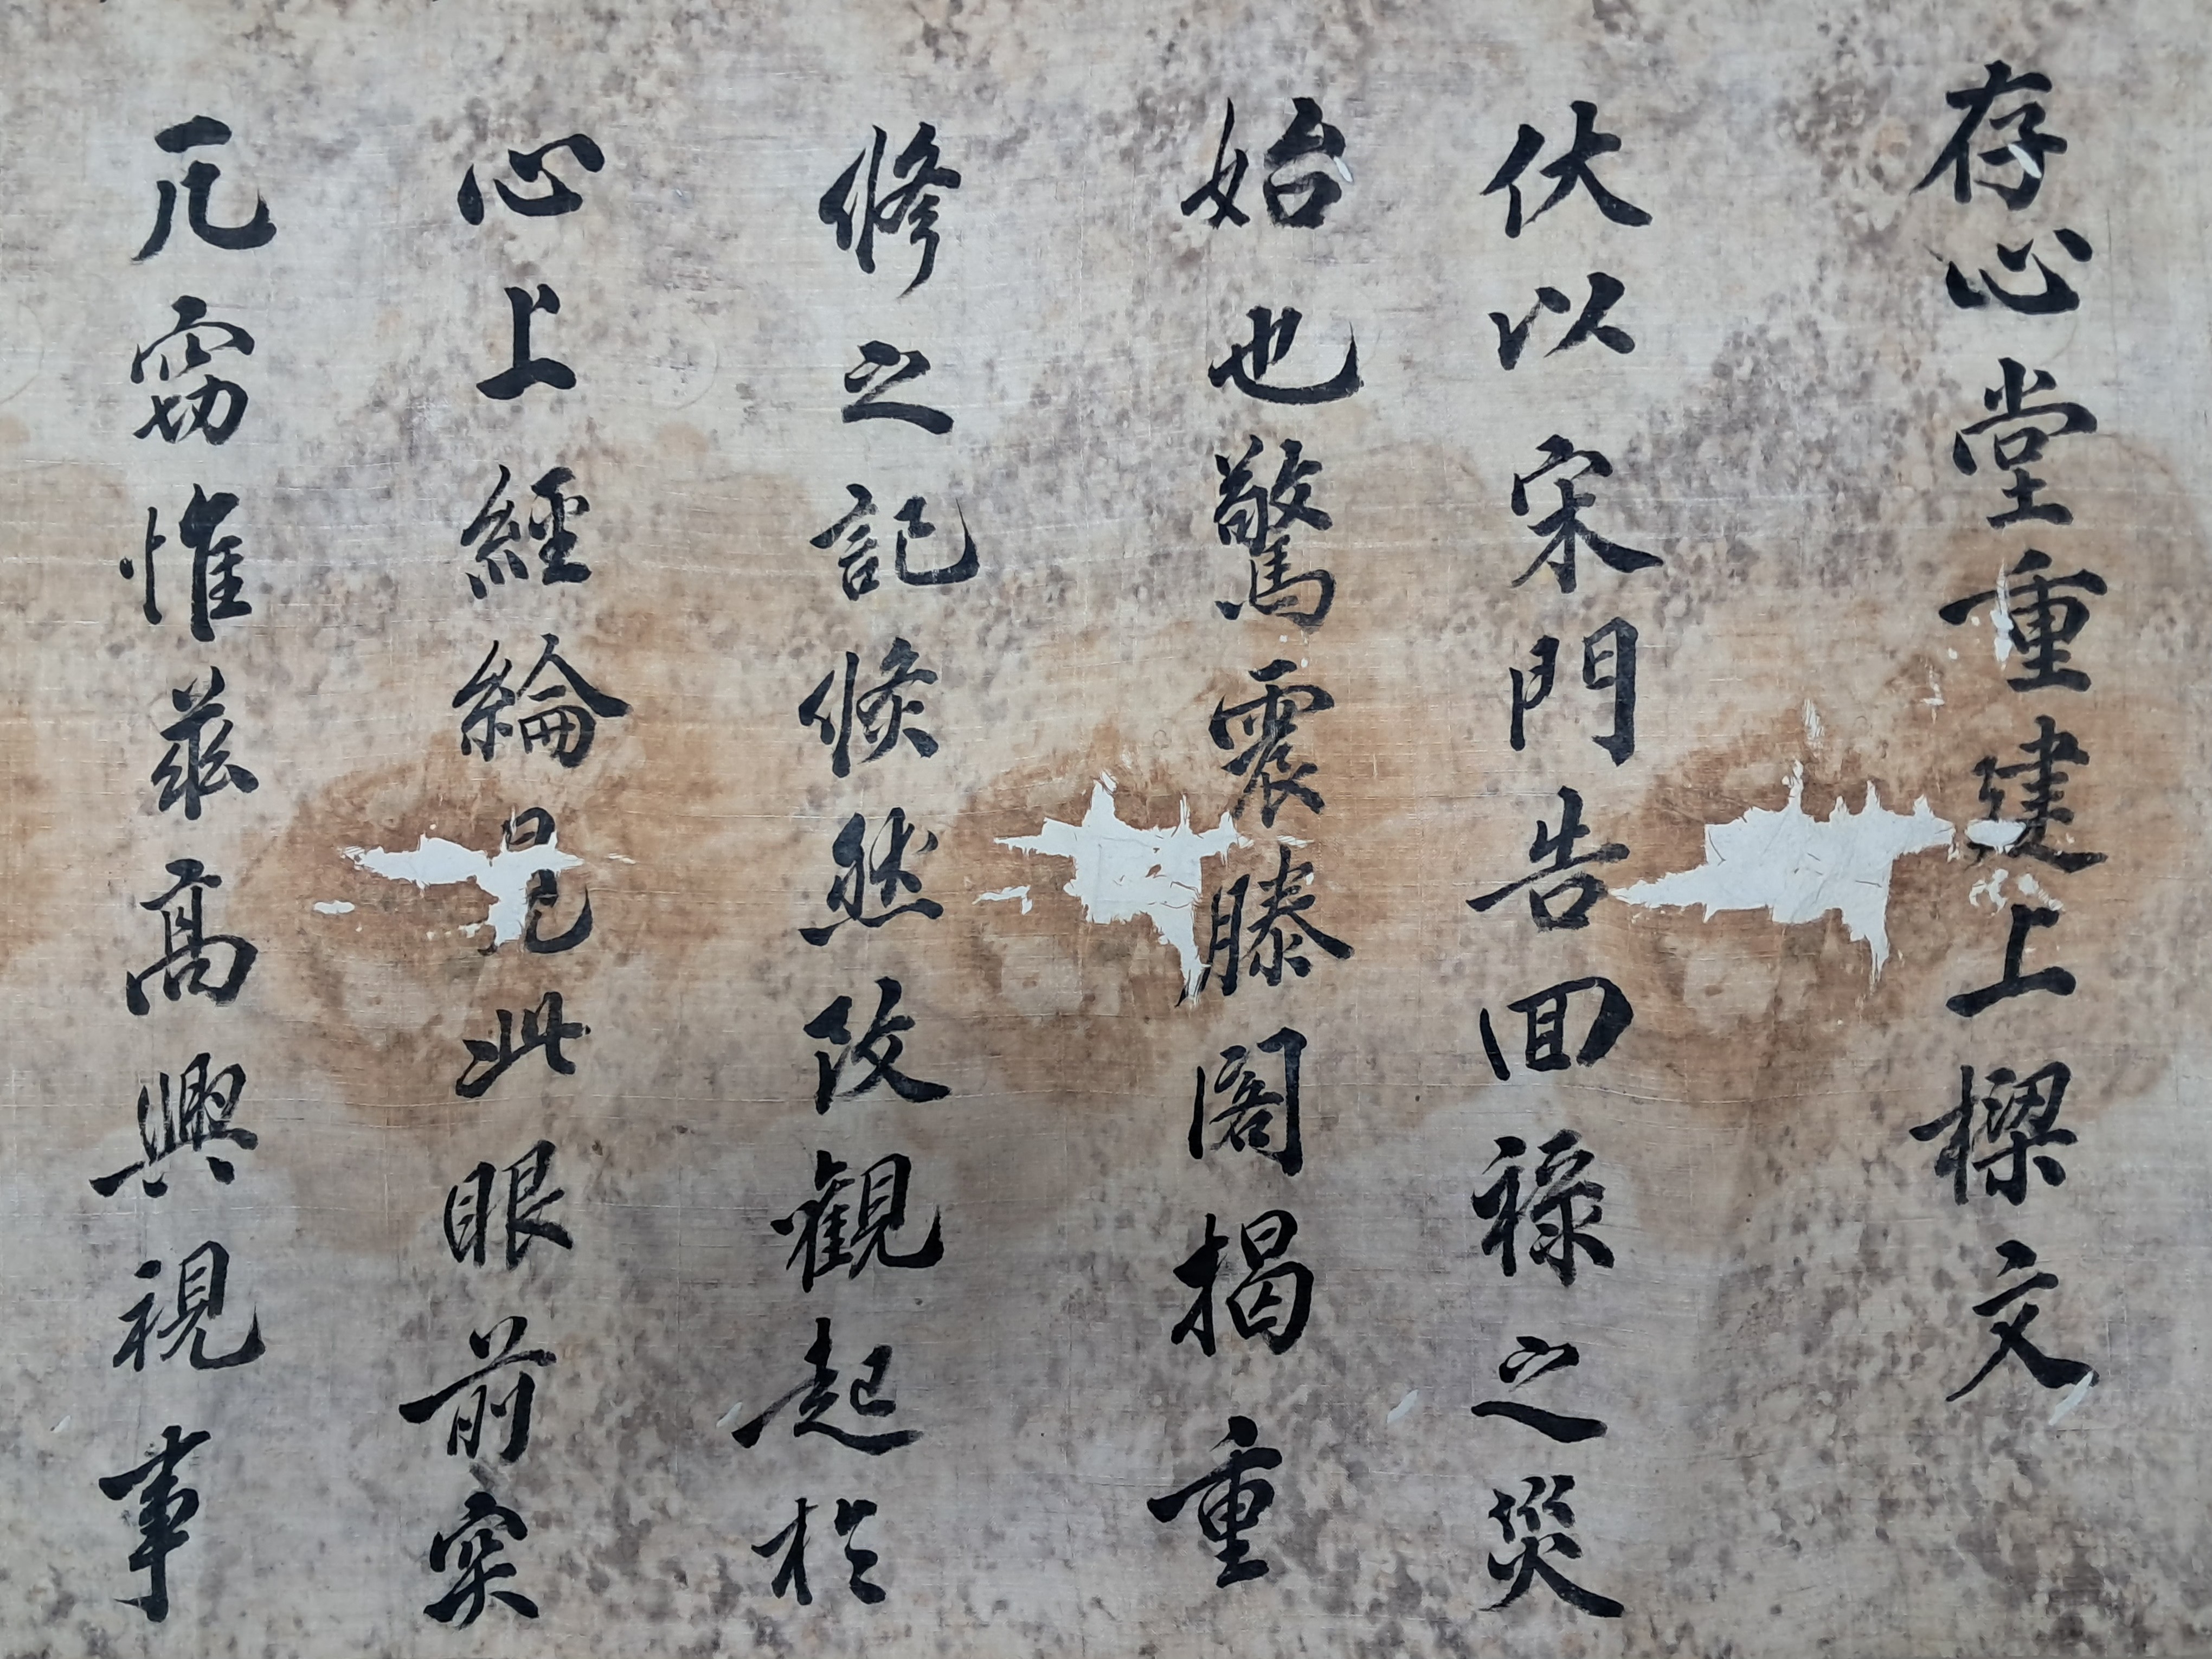 存心堂重建上樑文
伏以宋門告回祿之災
始也驚震滕閣揭重
修之記倏然改観起於
心上經綸見此眼前突
兀窃惟茲高興視事